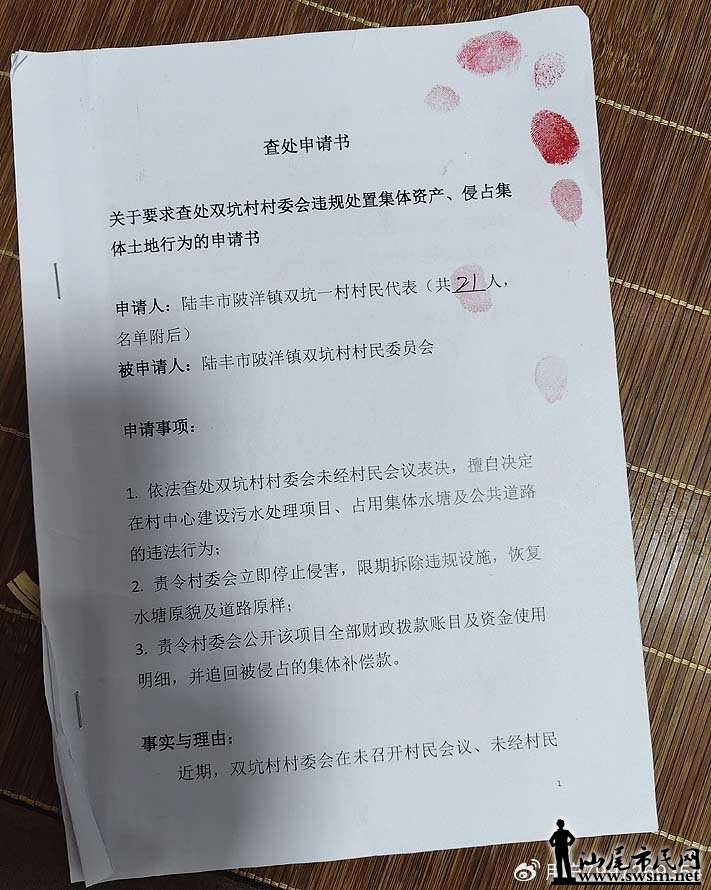 查处申请书
关于要求查处双坑村村委会违规处置集体资产、侵占集
体土地行为的申请书
申请人：陆丰市陂洋镇双坑一村村民代表（共 21 人，
名单附后）
被申请人：陆丰市陂洋镇双坑村村民委员会
申请事项：
1. 依法查处双坑村村委会未经村民会议表决，擅自决定
在村中心建设污水处理项目、占用集体水塘及公共道路
的违法行为；
2. 责令村委会立即停止侵害，限期拆除违规设施，恢复
水塘原貌及道路原样；
3. 责令村委会公开该项目全部财政拨款账目及资金使用
明细，并追回被侵占的集体补偿款。
事实与理由：
近期，双坑村村委会在未召开村民会议、未经村民
1
汕尾市民网
www.swsm.net